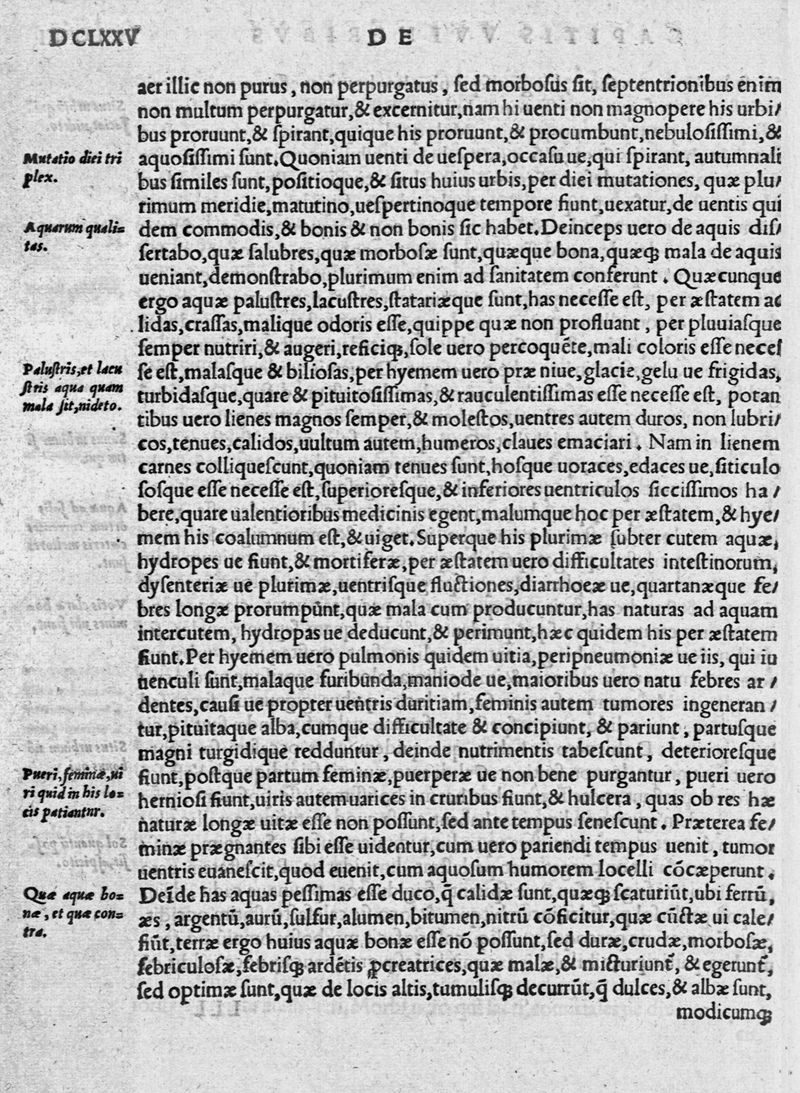 DCLXXV
DE
aer illic non purus, non perpurgatus, sed morbosus sit, septentrionibus enim
non multum perpurgatur,& excernitur,nam hi uenti non magnopere his urbi/
bus proruunt,& spirant,quique his proruunt,& procumbunt,nebulosissimi,&
Mutatio diei tri
plex.
aquosissimi sunt.Quoniam uenti de uespera,occasu ue,qui spirant, autumnali
bus similes sunt,positioque,& situs huius urbis,per diei mutationes, quæ plu/
rimum meridie,matutino,uespertinoque tempore fiunt,uexatur,de uentis qui
Aquarum quali=
tas.
dem commodis,& bonis & non bonis sic habet.Deinceps uero de aquis dis/
sertabo,quæ salubres,quæ morbosæ sunt,quæque bona,quæqꝫ mala de aquis
ueniant,demonstrabo,plurimum enim ad sanitatem conferunt. Quæcunque
ergo aquæ palustres,lacustres,statariæque sunt,has necesse est, per æstatem ac
lidas,crassas,malique odoris esse,quippe quæ non profluant, per pluuiasque
semper nutriri,& augeri,reficiqꝫ,sole uero percoquẽte,mali coloris esse necel
Palustris,et lacu
stris aqua quam
mala sit,uideto.
se est,malasque & biliosas,per hyemem uero præ niue,glacie,gelu ue frigidas,
turbidasque,quare & pituitosissimas,& rauculentissimas esse necesse est, potan
tibus uero lienes magnos semper,& molestos,uentres autem duros, non lubri/
cos,tenues,calidos,uultum autem,humeros,claues emaciari. Nam in lienem
carnes colliquescunt,quoniam tenues sunt,hosque uoraces,edaces ue,siticulo
sosque esse necesse est,superioresque,& inferiores uentriculos siccissimos ha/
bere,quare ualentioribus medicinis egent,malumque hoc per æstatem,& hye/
mem his coalumnum est,& uiget.Superque his plurimæ subter cutem aquæ,
hydropes ue fiunt,& mortiferæ,per æstatem uero difficultates intestinorum,
dysenteriæ ue plurimæ,uentrisque fluctiones,diarrhoeæ ue,quartanæque fe/
bres longæ prorumpunt,quæ mala cum producuntur,has naturas ad aquam
intercutem, hydropas ue deducunt,& perimunt,hæc quidem his per æstatem
fiunt.Per hyemem uero pulmonis quidem uitia,peripneumoniæ ue iis, qui iu
uenculi sunt,malaque furibunda,maniode ue,maioribus uero natu febres ar/
dentes,causi ue propter uentris duritiam,feminis autem tumores ingeneran/
tur,pituitaque alba,cumque difficultate & concipiunt, & pariunt, partusque
magni turgidique redduntur, deinde nutrimentis tabescunt, deterioresque
Pueri,feminæ,ui
ri quid in his lo=
cis patiantur.
fiunt,postque partum feminæ,puerperæ ue non bene purgantur, pueri uero
herniosi fiunt,uiris autem uarices in cruribus fiunt,& hulcera, quas ob res hæ
naturæ longæ uitæ esse non possunt,sed ante tempus senescunt. Præterea fe/
minæ prægnantes sibi esse uidentur,cum uero pariendi tempus uenit, tumor
uentris euanescit,quod euenit,cum aquosum humorem locelli cõcæperunt.
Quæ aquæ bo=
næ, et quæ con=
tra.
Deĩde has aquas pessimas esse duco,q̃ calidæ sunt,quæqꝫ scaturiũt,ubi ferrũ,
æs, argentũ,aurũ,sulfur,alumen,bitumen,nitrũ cõficitur,quæ cũctæ ui cale/
fiũt,terræ ergo huius aquæ bonæ esse nõ possunt,sed duræ,crudæ,morbosæ,
febriculosæ,febrisqꝫ ardẽtis ꝓcreatrices,quæ malæ,& micturiunt̃, & egerunt̃,
sed optimæ sunt,quæ de locis altis,tumulisqꝫ decurrũt,q̃ dulces,& albæ sunt,
modicumqꝫ